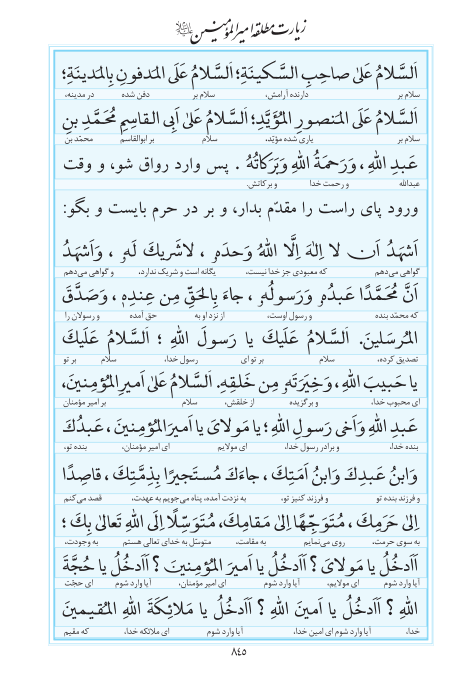 زیارت مطلقه امیرالمؤمنین علیه‌السلام
اَلسَّلامُ عَلیٰ صاحِبِ السَّکینَةِ؛ اَلسَّلامُ عَلَی المَدفونِ بِالمَدینَةِ؛
سلام بر دارنده آرامش، سلام بر دفن شده در مدینه،
اَلسَّلامُ عَلَی المَنصورِ المُؤَیَّدِ؛ اَلسَّلامُ عَلیٰ اَبِی القاسِمِ مُحَمَّدِ بنِ
سلام بر یاری شده مؤیّد، سلام بر ابوالقاسم محمّد بن
عَبدِ اللهِ، وَرَحمَةُ اللهِ وَبَرَکاتُهُ. پس وارد رواق شو، و وقت
عبدالله و رحمت خدا و برکاتش.
ورود پای راست را مقدّم بدار، و بر در حرم بایست و بگو:
اَشهَدُ اَن لا اِلٰهَ اِلَّا اللهُ وَحدَهٗ، لاشَریكَ لَهٗ، وَاَشهَدُ
گواهی می‌دهم که معبودی جز خدا نیست، یگانه است و شریک ندارد، و گواهی می‌دهم
اَنَّ مُحَمَّدًا عَبدُهٗ وَرَسولُهٗ، جاءَ بِالحَقِّ مِن عِندِهٖ، وَصَدَّقَ
که محمّد بنده و رسول اوست، از نزد او به حق آمده و رسولان را
المُرسَلینَ. اَلسَّلامُ عَلَیكَ یا رَسولَ اللهِ؛ اَلسَّلامُ عَلَیكَ
تصدیق کرده، سلام بر تو ای رسول خدا، سلام بر تو
یا حَبیبَ اللهِ، وَخِیَرَتَهٗ مِن خَلقِهٖ. اَلسَّلامُ عَلیٰ اَمیرِ المُؤمِنینَ،
ای محبوب خدا، و برگزیده از خلقش، سلام بر امیر مؤمنان
عَبدِ اللهِ وَاَخی رَسولِ اللهِ؛ یا مَولایَ یا اَمیرَ المُؤمِنینَ، عَبدُكَ
بنده خدا، و برادر رسول خدا، ای مولایم ای امیر مؤمنان، بنده تو،
وَابنُ عَبدِكَ وَابنُ اَمَتِكَ، جاءَكَ مُستَجیرًا بِذِمَّتِكَ، قاصِدًا
و فرزند بنده تو و فرزند کنیز تو، به نزدت آمده، پناه می‌جویم به عهدت، قصد می‌کنم
اِلیٰ حَرَمِكَ، مُتَوَجِّهًا اِلیٰ مَقامِكَ، مُتَوَسِّلًا اِلَی اللهِ تَعالیٰ بِكَ؛
به سوی حرمت، روی می‌نمایم به مقامت، متوسّل به خدای تعالی هستم به وجودت،
ءَاَدخُلُ یا مَولایَ؟ ءَاَدخُلُ یا اَمیرَ المُؤمِنینَ؟ ءَاَدخُلُ یا حُجَّةَ
آیا وارد شوم ای مولایم، آیا وارد شوم ای امیر مؤمنان، آیا وارد شوم ای حجّت
اللهِ؟ ءَاَدخُلُ یا اَمینَ اللهِ؟ ءَاَدخُلُ یا مَلائِکَةَ اللهِ المُقیمینَ
خدا، آیا وارد شوم ای امین خدا، آیا وارد شوم ای ملائکه خدا، که مقیم
٨٤٥